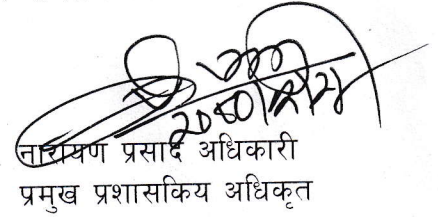 नारायण प्रसाद अधिकारी
प्रमुख प्रशासकिय अधिकृत